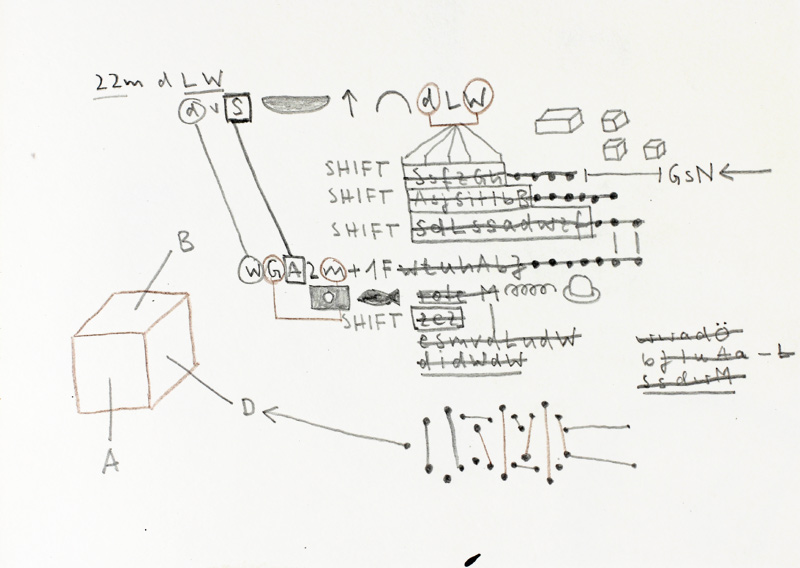 22m d LW
d v S d L W
SHIFT SsfzGh GsN
SHIFT AsjsitlbB
SHIFT sdLssadwzf
B
w G A 2 m + 1 F wtuhAbz
M
SHIFT zez
esmvdLudW
didWdW
bjluAa - L
ssdirM
D
A